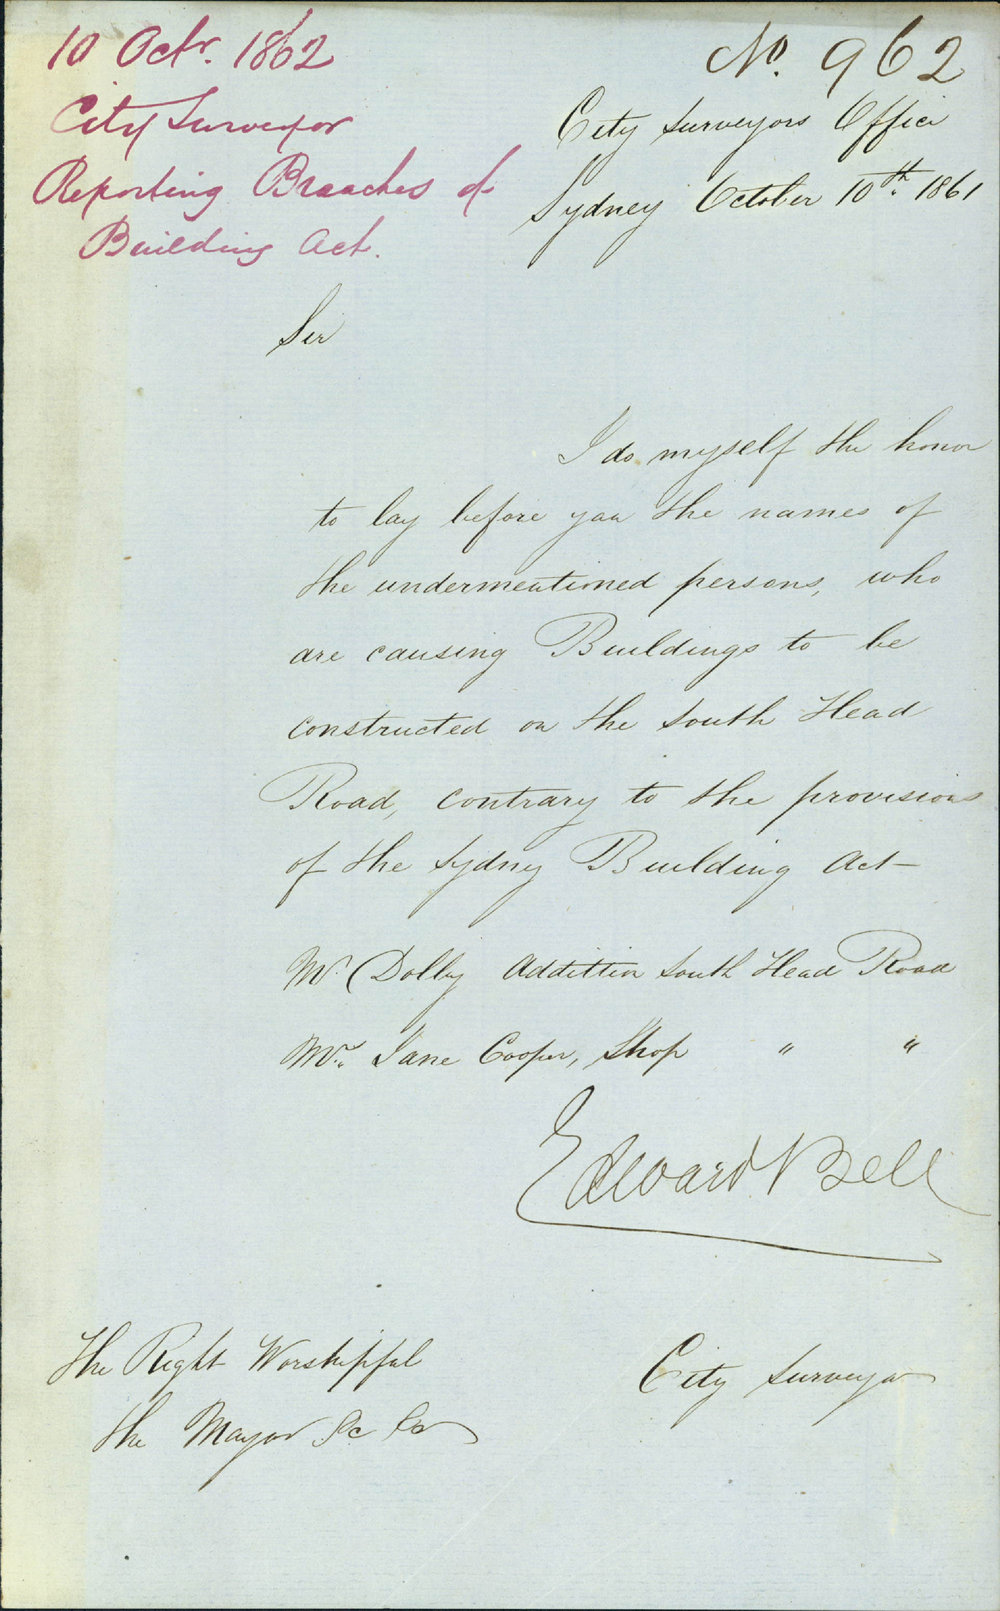 10 Octr. 1862
City Surveyor
Reporting Breaches of
Building Act.
No. 962
City Surveyors Office
Sydney October 10th. 1861
Sir
I do myself the honor
to lay before you the names of
the undermentioned persons, who
are causing Buildings to be
constructed on the South Head
Road, contrary to the provisions
of the Sydney Building Act -
Mr. Dolby Addition South Head Road
Mrs. Jane Cooper, Shop " "
Edward Bell
City Surveyor
The Right Worshipful
the Mayor &c &c